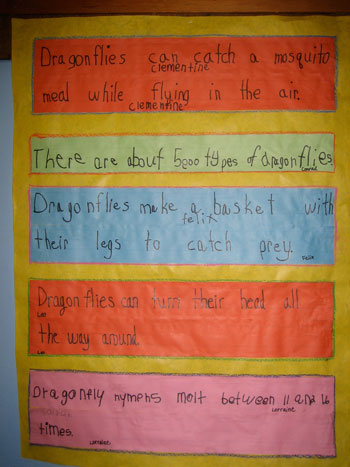 Dragonflies can catch a mosquito
clementine
meal while flying in the air.
clementine
There are about 5000 types of dragonflies.
Conrad
Dragonflies make a basket with
felix
their legs to catch prey.
Felix
Dragonflies can turn their head all
Leo
the way around.
Leo
Dragonfly nymphs molt between 11 and 16
Lorraine
times.
Lorraine